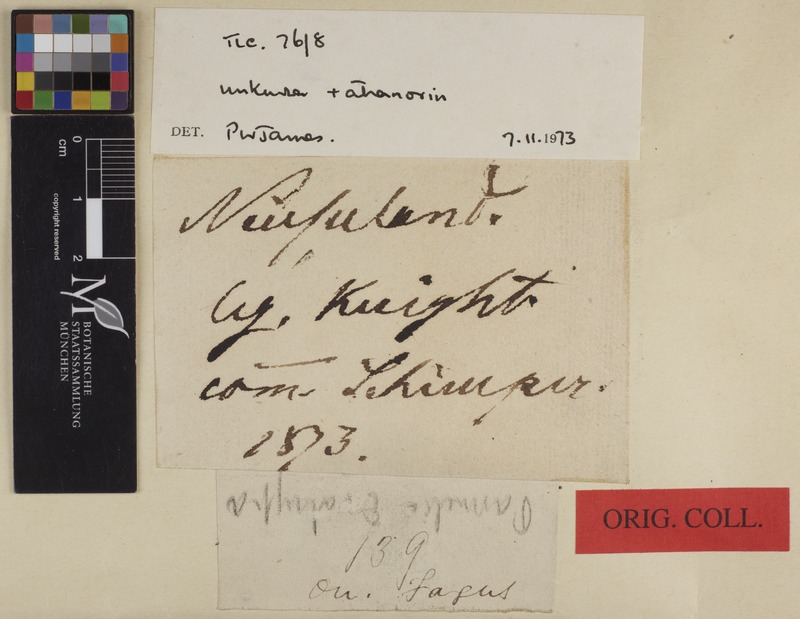 TLC. 76/8
unknown + atranorin
DET. PWJames. 7.11.1973
Neuseeland.
leg. Knight.
com̄ Schimper.
1873.
Parmelia
139
on. Fagus
ORIG. COLL.
0
cm
1
2
copyright reserved
M
BOTANISCHE
STAATSSAMMLUNG
MÜNCHEN